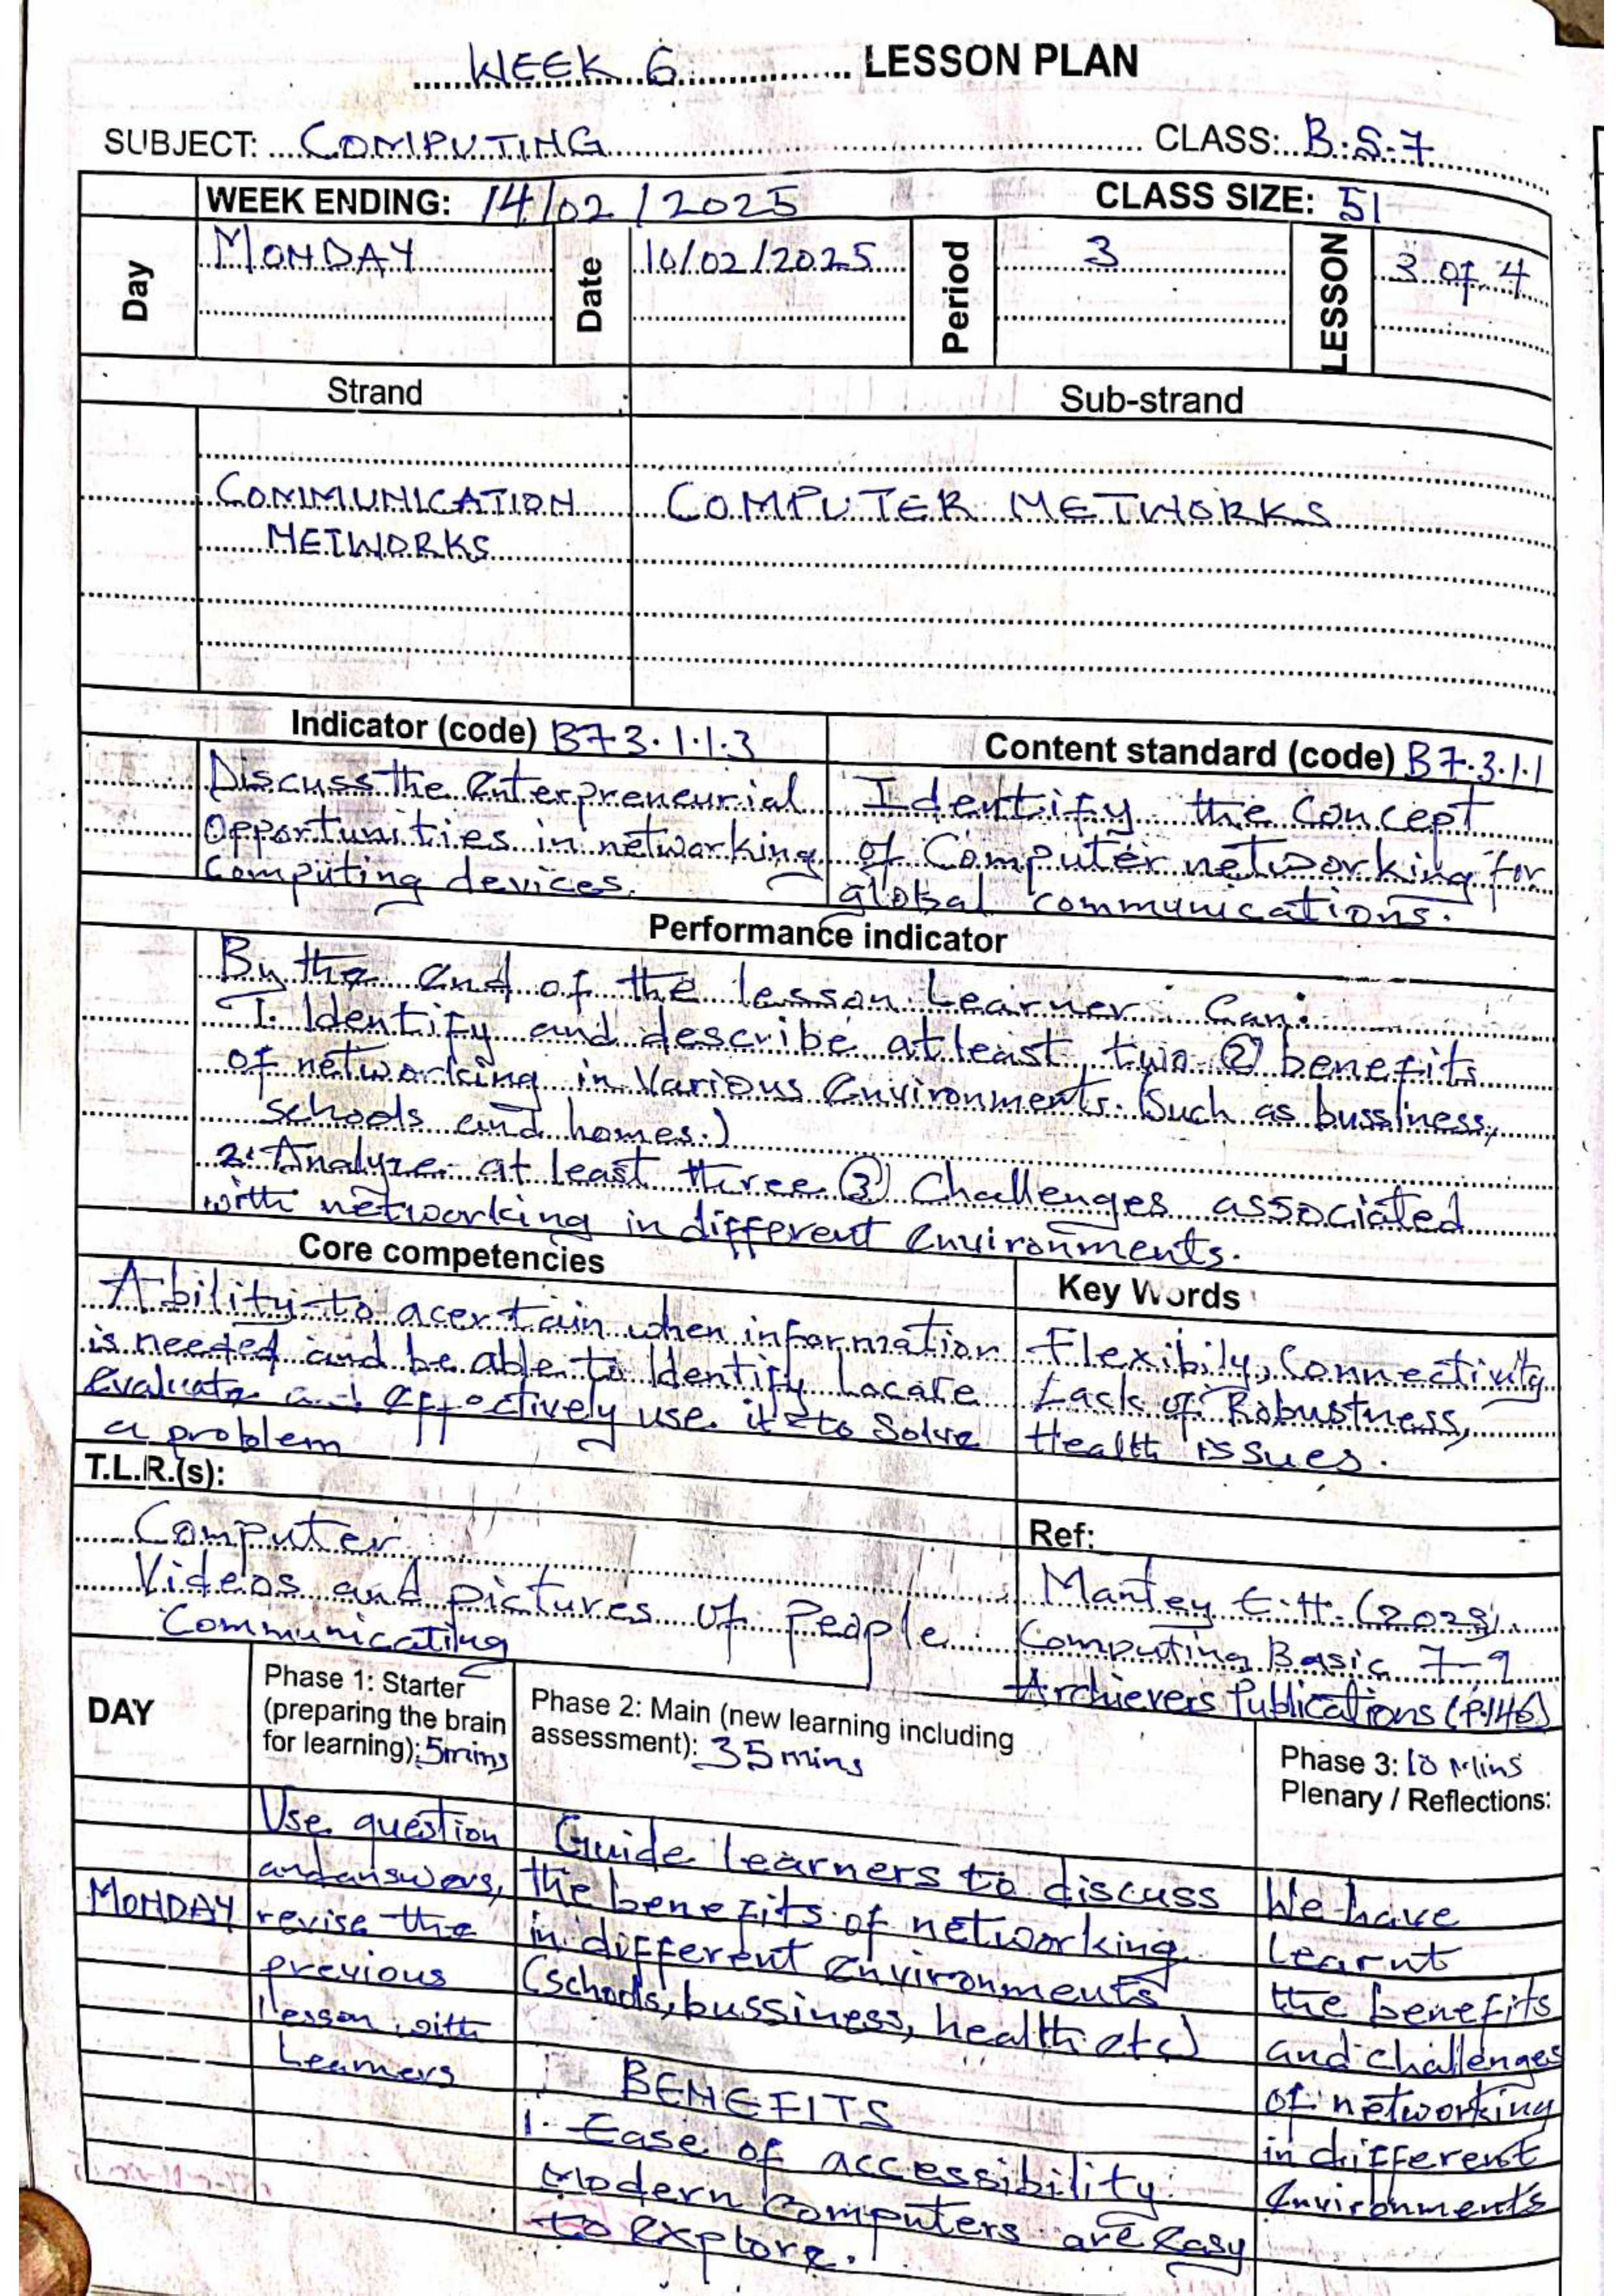 WEEK 6 LESSON PLAN
SUBJECT: COMPUTING CLASS: B.S.7
WEEK ENDING: 14/02/2025 CLASS SIZE: 51
Day MONDAY Date 10/02/2025 Period 3 LESSON 3 of 4
Strand Sub-strand
COMMUNICATION COMPUTER NETWORKS
NETWORKS
Indicator (code) B7 3.1.1.3 Content standard (code) B7.3.1.1
Discuss the enterpreneurial
Opportunities in networking
Computing devices.
Identify the Concept
of Computer networking for
global communications.
Performance indicator
By the end of the lesson Learner Can:
1. Identify and describe at least two ② benefits
of networking in various environments. (Such as bussiness,
schools and homes.)
2. Analyze at least three ③ Challenges associated
with networking in different environments.
Core competencies
Ability to acertain when information
is needed and be able to Identify Locate
evaluate and effectively use it to Solve
a problem
Key Words
Flexibily, Connectivity
Lack of Robustness,
Health issues.
T.L.R.(s):
Computer
Videos and pictures of People
Communicating
Ref:
Mantey E.H.
Computing Basic 7-9
Archievers Publications (P.146)
DAY
Phase 1: Starter
(preparing the brain
for learning): 5mins
Phase 2: Main (new learning including
assessment): 35 mins
Phase 3: 10 Mins
Plenary / Reflections:
MONDAY
Use question
and answers,
revise the
previous
lesson with
Learners
Guide learners to discuss
the benefits of networking
in different environments
(schools, bussiness, health etc)
BENEFITS
1. Ease of accessibility:
Modern Computers are easy
to explore.
We have
Learnt
the benefits
and challenges
of networking
in different
environments